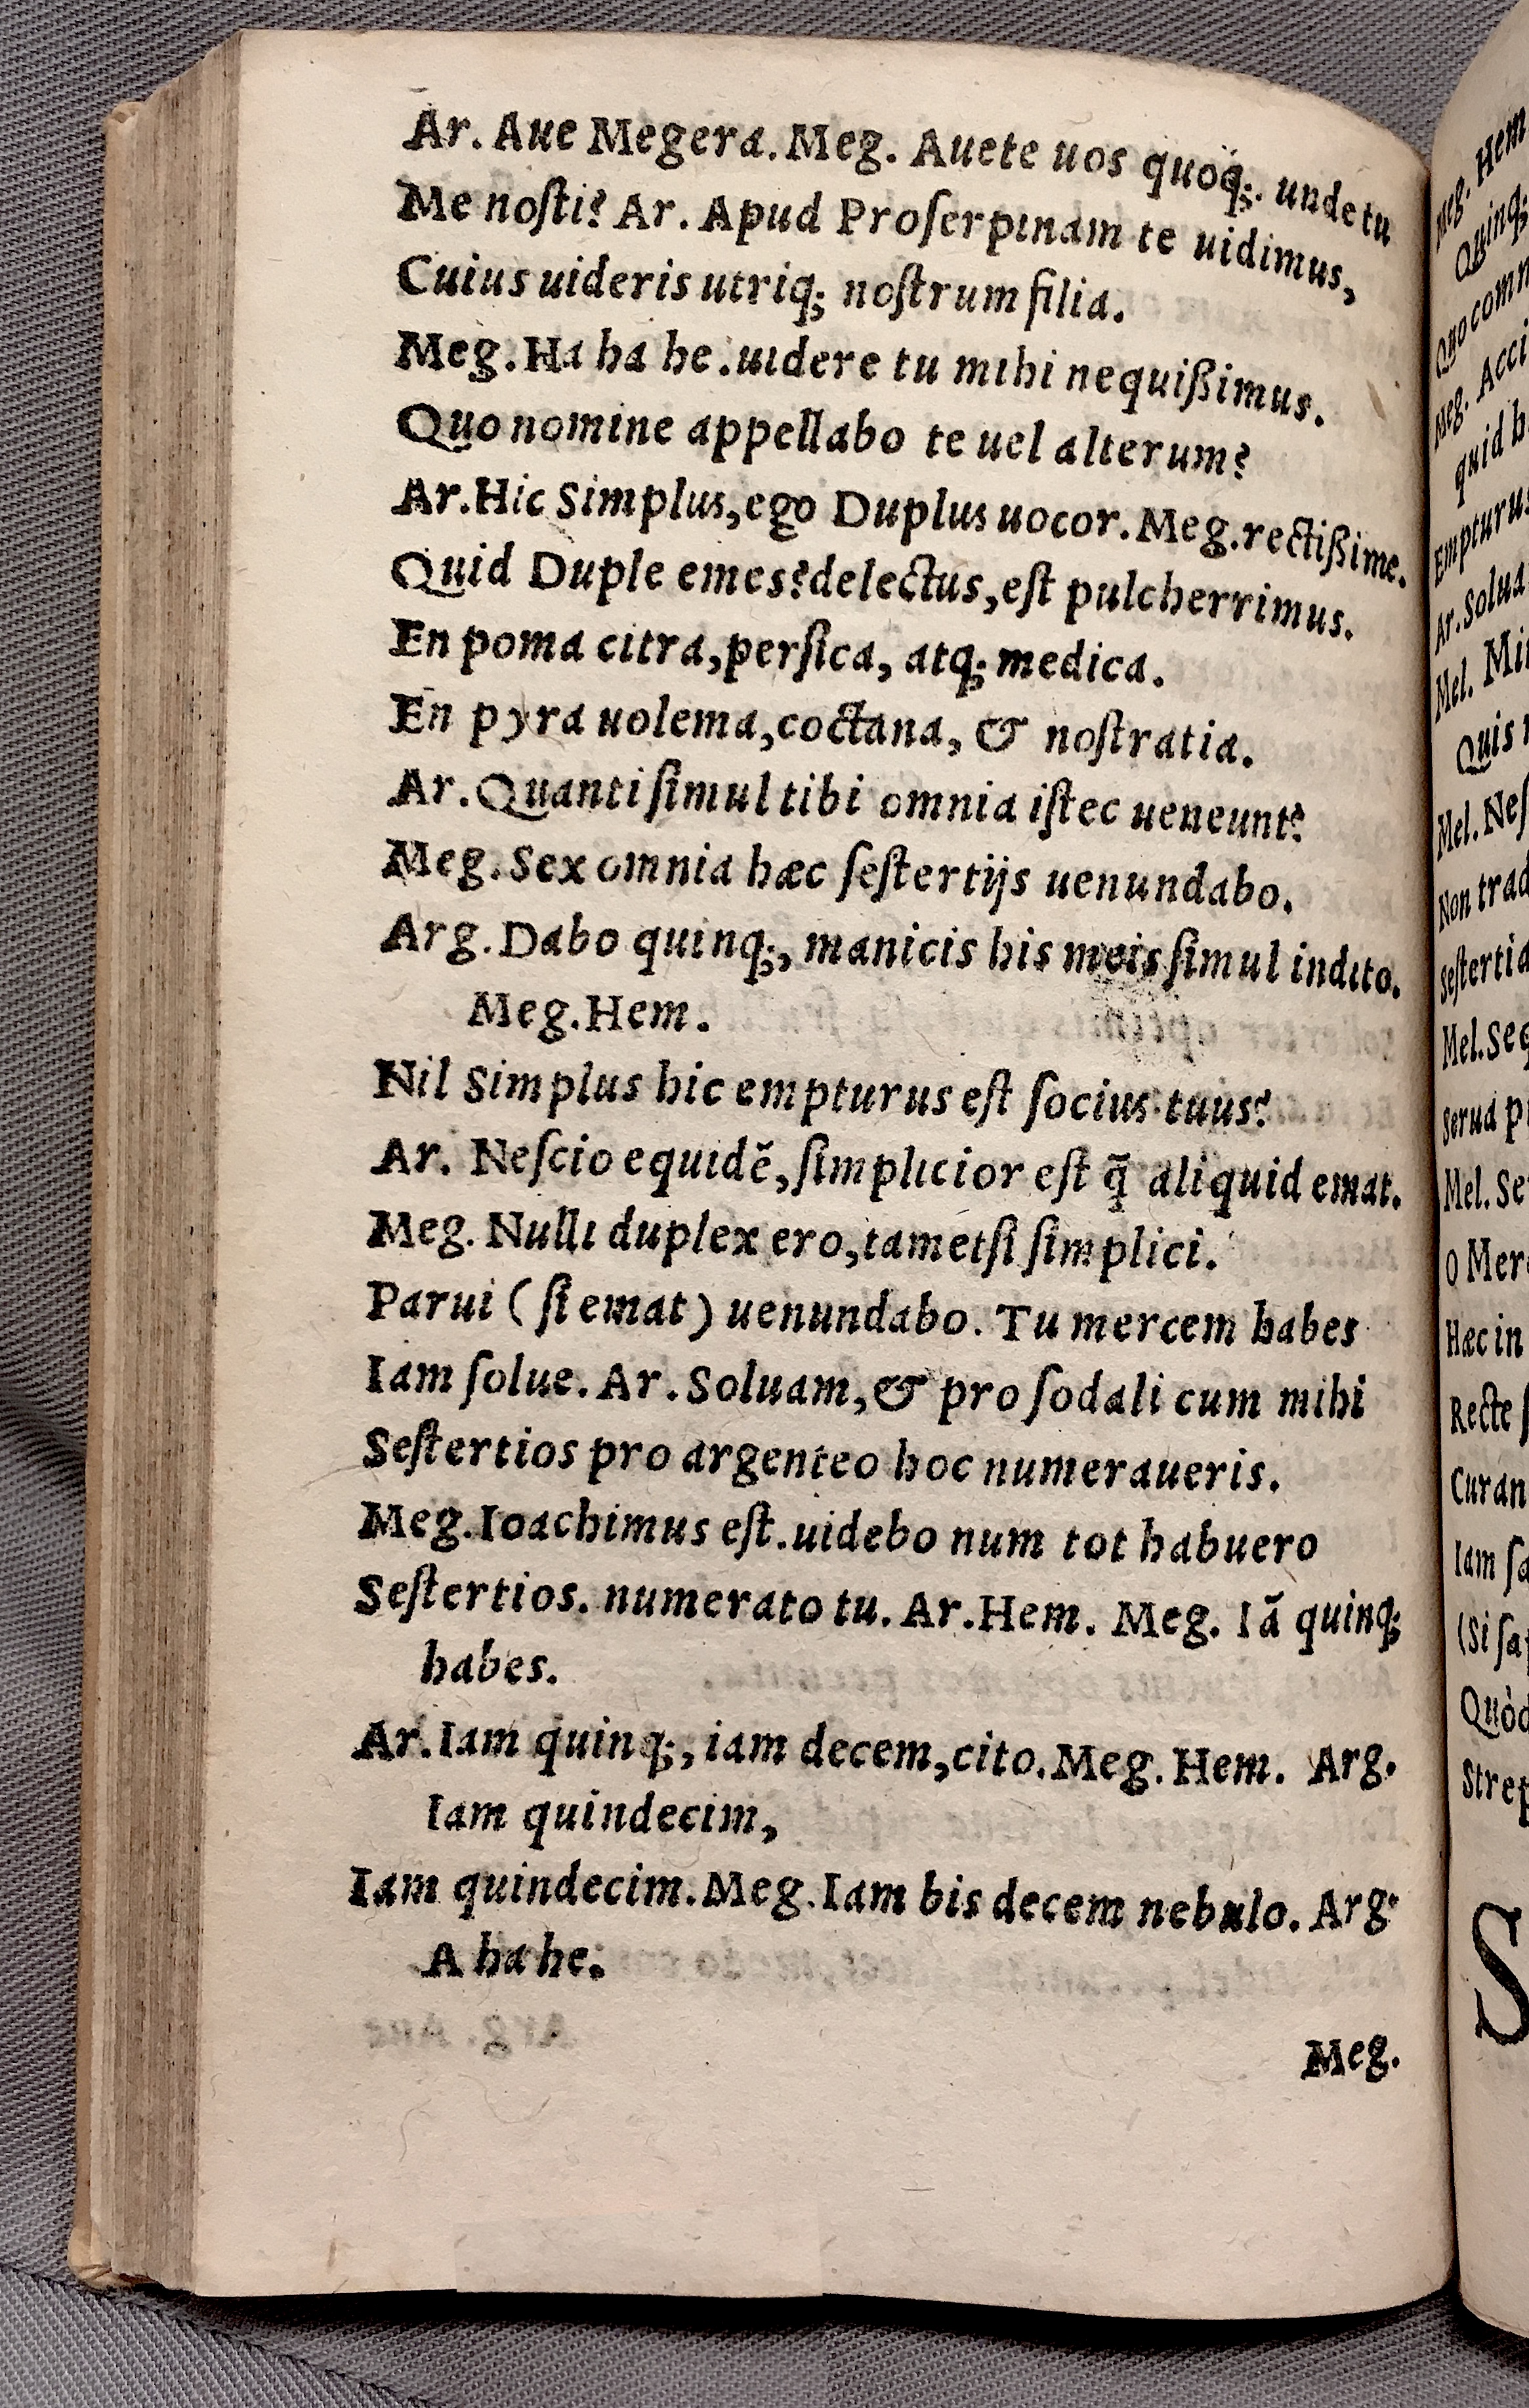 Ar. Aue Megera. Meg. Auete uos quoq;. unde tu
Me noſti? Ar. Apud Proſerpinam te uidimus,
Cuius uideris utriq; noſtrum filia.
Meg. Ha ha he. uidere tu mihi nequißimus.
Quo nomine appellabo te uel alterum?
Ar. Hic Simplus, ego Duplus uocor. Meg. rectißime.
Quid Duple emes? delectus, eſt pulcherrimus.
En poma citra, perſica, atq; medica.
En pyra uolema, coctana, & noſtratia.
Ar. Quanti ſimul tibi omnia iſtec ueneunt?
Meg. Sex omnia hæc ſeſtertijs uenundabo.
Arg. Dabo quinq;, manicis his meis ſimul indito.
Meg. Hem.
Nil Simplus hic empturus eſt ſocius tuus?
Ar. Neſcio equidẽ, ſimplicior eſt q̃ aliquid emat.
Meg. Nulli duplex ero, tametſi ſimplici.
Parui ( ſi emat ) uenundabo. Tu mercem habes
Iam ſolue. Ar. Soluam, & pro ſodali cum mihi
Seſtertios pro argenteo hoc numeraueris.
Meg. Ioachimus eſt. uidebo num tot habuero
Seſtertios. numerato tu. Ar. Hem. Meg. Iã quinq;
habes.
Ar. Iam quinq;, iam decem, cito. Meg. Hem. Arg.
Iam quindecim,
Iam quindecim. Meg. Iam bis decem nebulo. Arg.
A ha he.
Meg.
Meg. Hem
Quinq;
Quo comm
Meg. Acci
quid h
Empturus
Ar. Solua
Mel. Mi
Quis
Mel. Neſ
Non trad
Seſtertia
Mel. Seq
Serua p
Mel. Se
O Mer
Hæc in
Recte ſ
Curan
Iam ſa
(Si ſa
Quòd
Strep
S